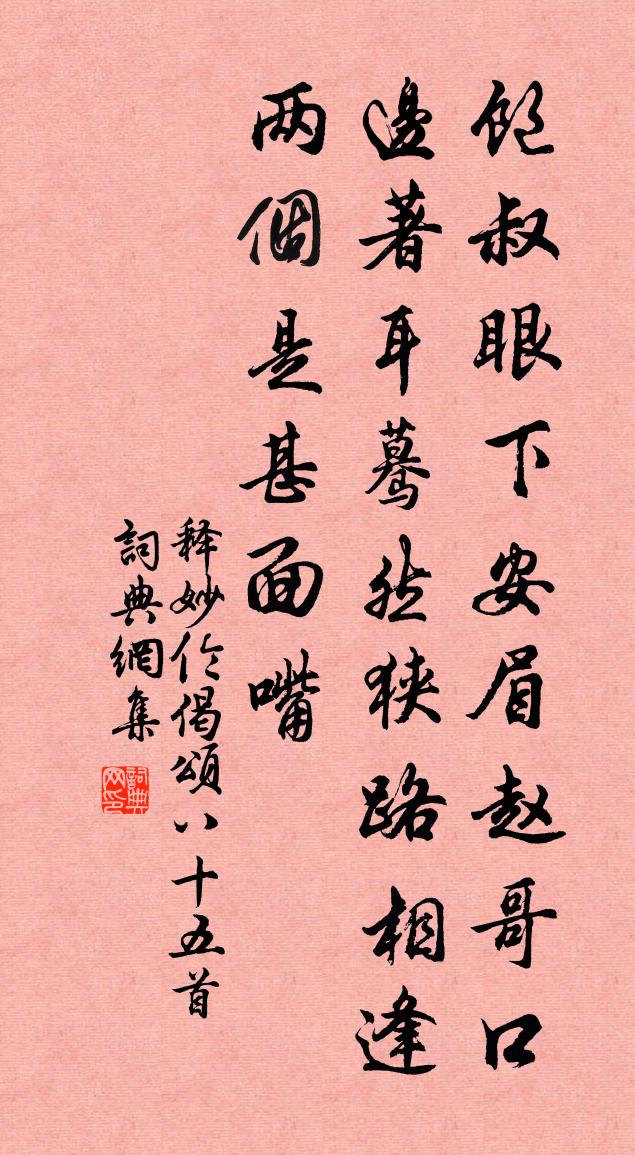 飽叔眼下安眉赵哥口
邊著耳驀然狹路相逢
两個是甚面嘴
释妙伦偈頌八十五首
詞典網集
詞典网印